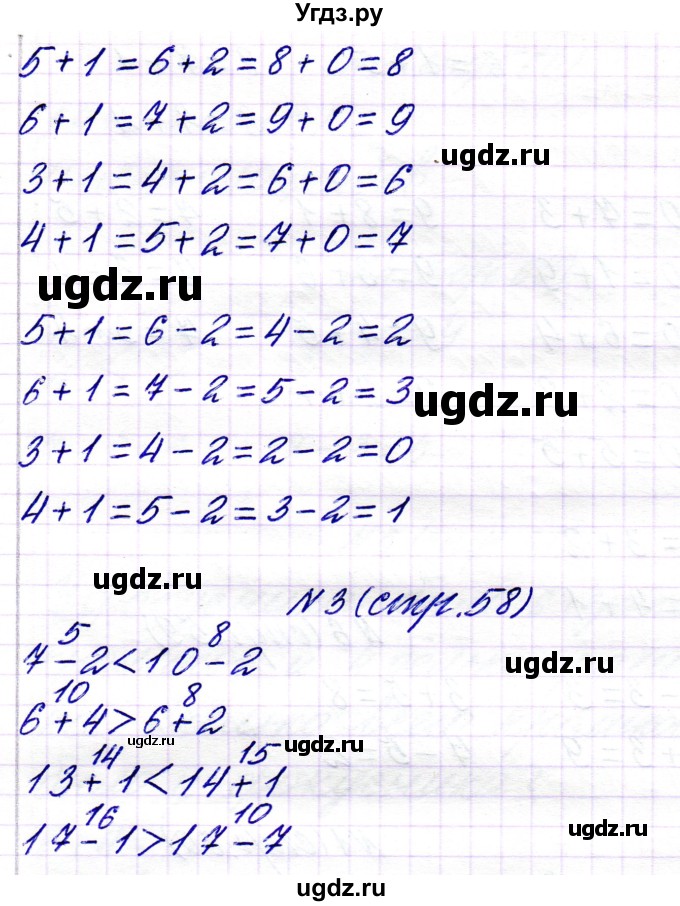 Угдз.ру
5+1=6+2=8+0=8
6+1=7+2=9+0=9
ugdz.ru
3+1=4+2=6+0=6
4+1=5+2=7+0=7
ugdz.ru
5+1=6-2=4-2=2
6+1=7-2=5-2=3
ugdz.ru
3+1=4-2=2-2=0
4+1=5-2=3-2=1
ugdz.ru
N3 (стр.58)
5 8
7-2<10-2
ugdz.ru
10 8
6+4>6+2
ugdz.ru
ugdz.ru
14 15
13+1<14+1
16 10
17-1>17-7
ugdz.ru
ugdz.ru